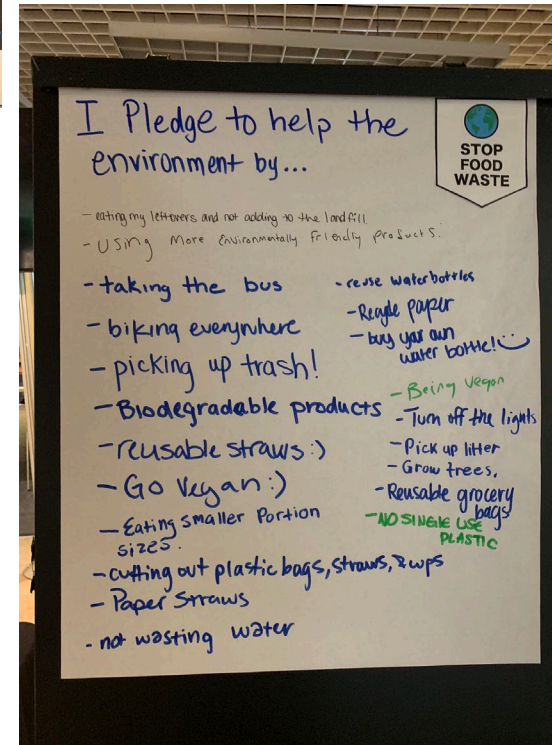 I Pledge to help the
environment by...
STOP
FOOD
WASTE
- eating my leftovers and not adding to the landfill
- Using More Environmentally Friendly Products.
- taking the bus
- biking everywhere
- picking up trash!
- Biodegradable products
- reusable straws :)
- Go Vegan :)
- Eating smaller Portion
sizes.
- cutting out plastic bags, straws, & cups
- Paper Straws
- not wasting water
- reuse waterbottles
- Recycle paper
- buy your own
water bottle!
- Being vegan
- Turn off the lights
- Pick up litter
- Grow trees,
- Reusable grocery
bags
- NO SINGLE USE
PLASTIC